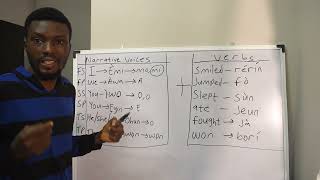 Narrative Voices
FS I → Emi → mo/mi
FP We → Awa → A
SS You → IWO → O, o
SP You → Eyin → E
TS He/She → o
TP won
Verbs
Smiled → rérin
Jumped → fò
Slept → Sùn
ate → Jeun
fought → jà
won → borí